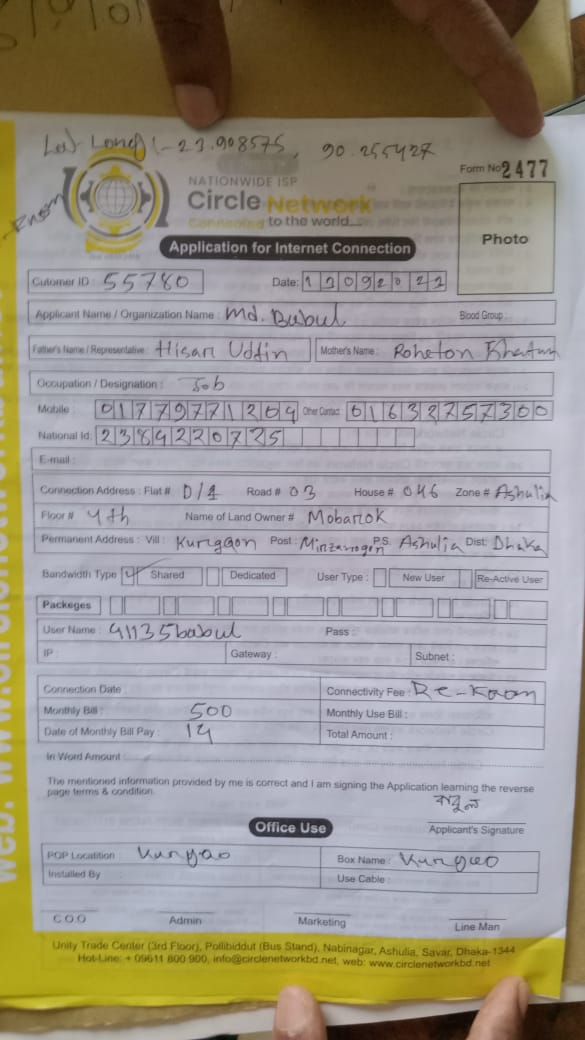 Lat-Long:- 23.908575, 90.255427
Form No 2477
NATIONWIDE ISP
Circle Network
Connecting to the world....
Application for Internet Connection
Photo
Cutomer ID : 55780 Date:
Applicant Name / Organization Name : Md. Babul Blood Group :
Father's Name / Representative : Hisan Uddin Mother's Name : Roheton Khatun
Occupation / Designation : Job
Mobile : 01779771269 Other Contact: 01632757300
National Id: 2384220725
E-mail :
Connection Address : Flat # D/1 Road # 03 House # 046 Zone # Ashulia
Floor # 4th Name of Land Owner # Mobarok
Permanent Address : Vill : Kurgaon Post : P.S. Ashulia Dist: Dhaka
Bandwidth Type Shared Dedicated User Type : New User Re-Active User
Packeges
User Name : 41135babul Pass :
IP : Gateway : Subnet :
Connection Date : Connectivity Fee :
Monthly Bill : 500 Monthly Use Bill :
Date of Monthly Bill Pay : 14 Total Amount :
In Word Amount :
The mentioned information provided by me is correct and I am signing the Application learning the reverse
page terms & condition.
বাবুল
Applicant's Signature
Office Use
POP Locatition : Kurgao Box Name :
Installed By Use Cable :
C.O.O Admin Marketing Line Man
Unity Trade Center (3rd Floor), Pollibiddut (Bus Stand), Nabinagar, Ashulia, Savar, Dhaka-1344
Hot-Line: + 09611 800 900, info@circlenetworkbd.net, web: www.circlenetworkbd.net